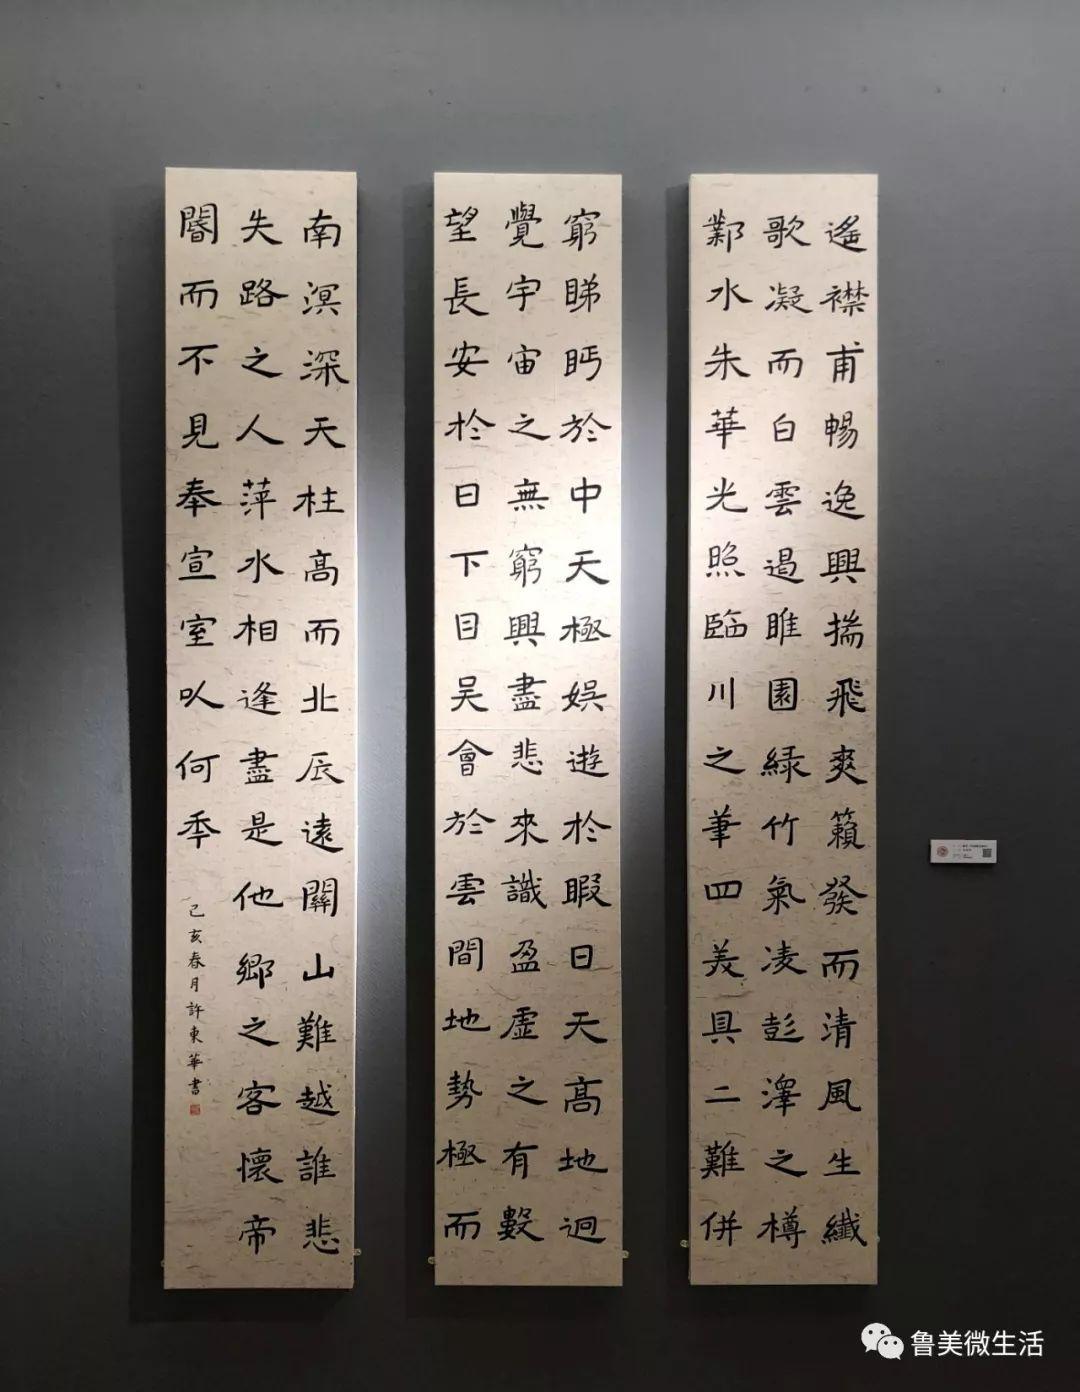 遙襟甫暢逸興揣飛爽籟發而清風生纖
歌凝而白雲遏睢園緑竹氣凌彭澤之樽
鄴水朱華光照臨川之筆四美具二難併
窮睇眄於中天極娛遊於暇日天高地迥
覺宇宙之無窮興盡悲來識盈虛之有數
望長安於日下目吴會於雲間地勢極而
南溟深天柱高而北辰遠關山難越誰悲
失路之人萍水相逢盡是他鄉之客懷帝
閽而不見奉宣室㕥何季
己亥春月許東華書
鲁美微生活